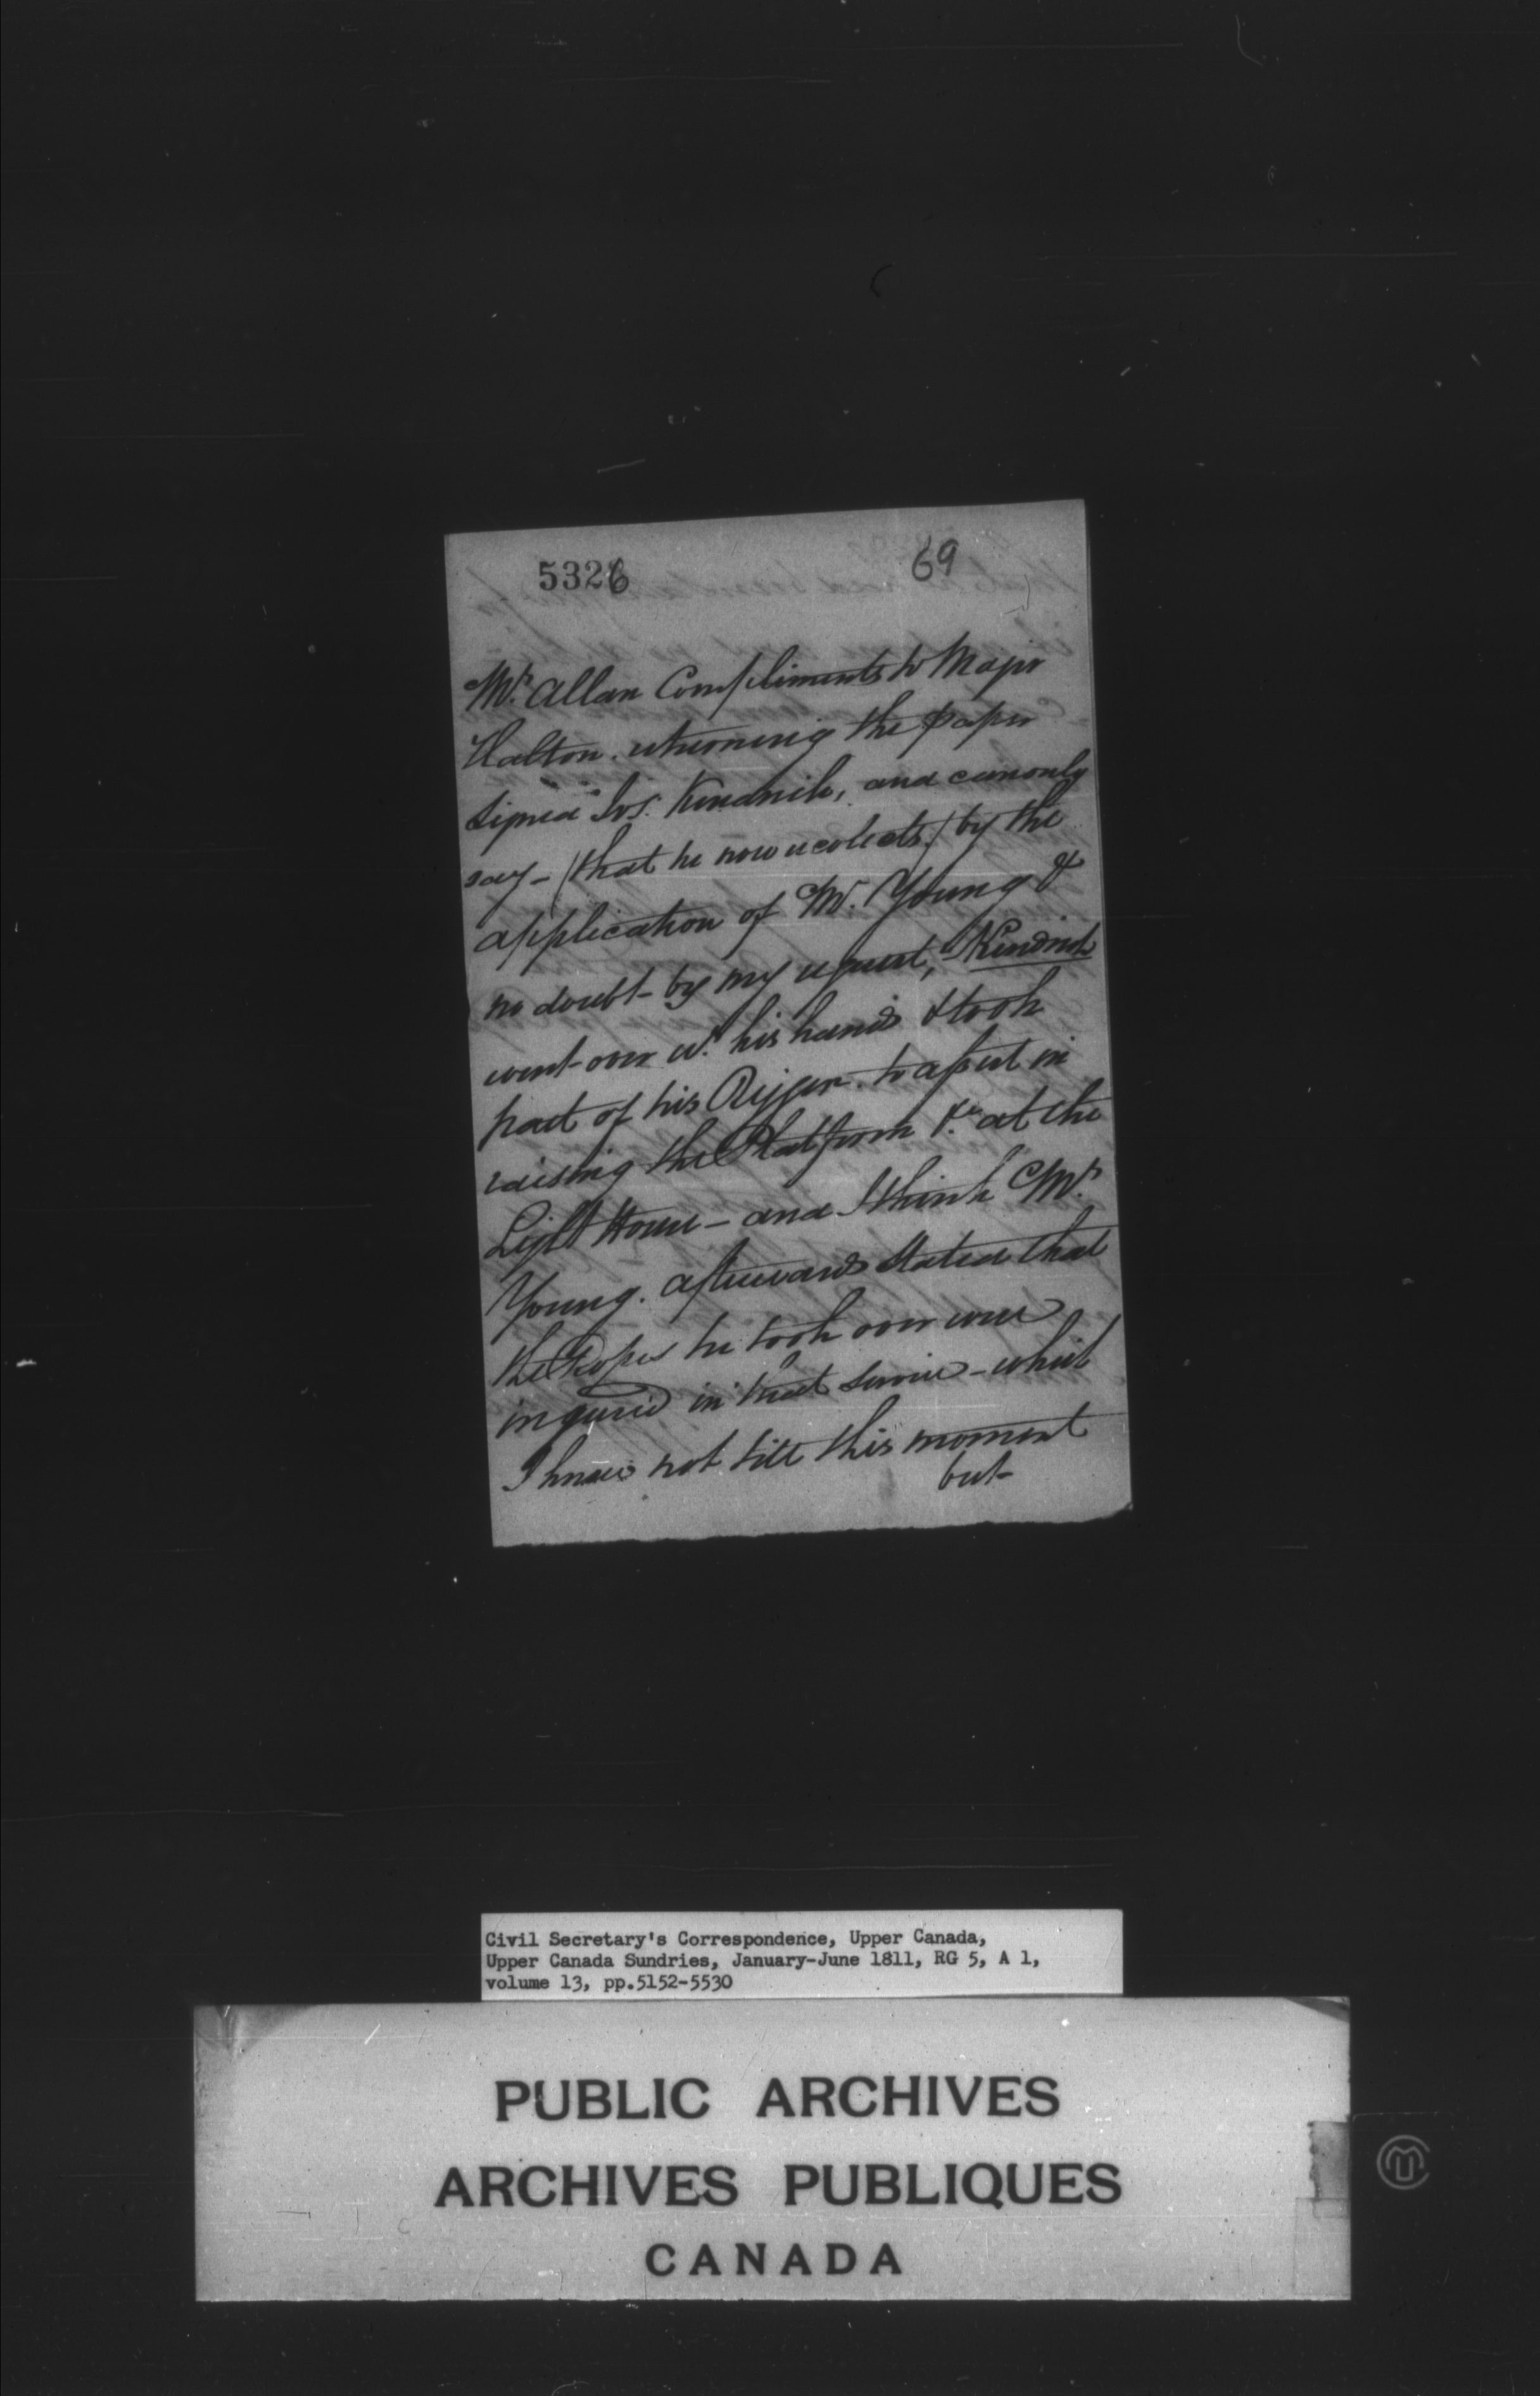 5326
69
Mr. Allan Compliments to Major
Halton. returning the paper
signed Jos. Kendrick, and can only
say - (that he now recolects) by the
application of Mr. Young &
no doubt - by my request, Kendrick
went over wt. his hands & took
part of his Rigger. to assist in
raising the Platform &c. at the
Light House - and I think Mr.
Young. afterwards stated that
the Ropes he took over were
injured in that service - which
I knew not till this moment
but
Civil Secretary's Correspondence, Upper Canada,
Upper Canada Sundries, January-June 1811, RG 5, A 1,
volume 13, pp.5152-5530
PUBLIC ARCHIVES
ARCHIVES PUBLIQUES
CANADA